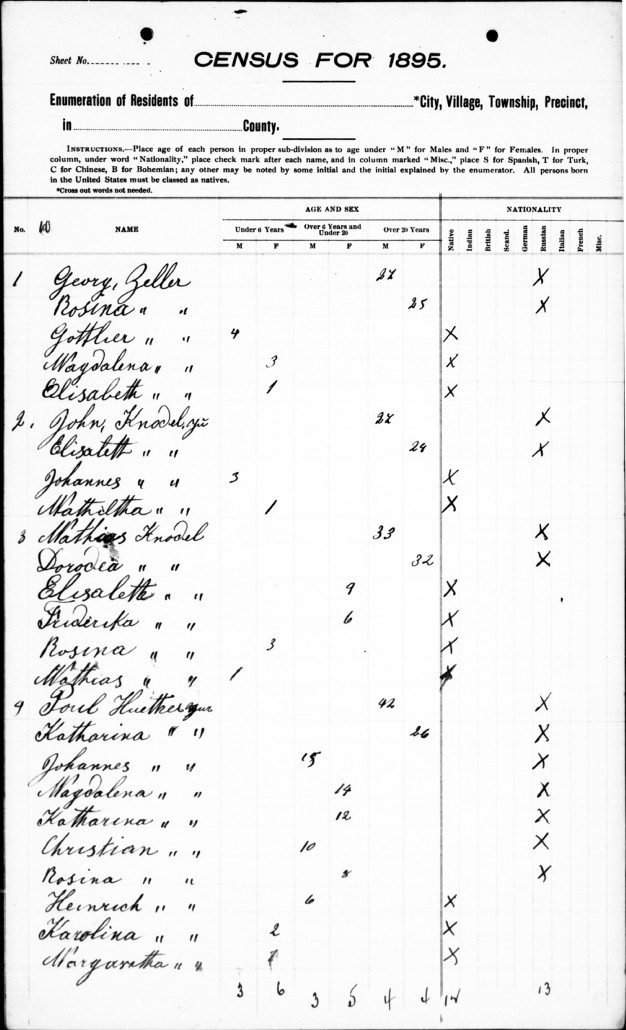 Sheet No.
CENSUS FOR 1895.
Enumeration of Residents of *City, Village, Township, Precinct,
in County.
INSTRUCTIONS.—Place age of each person in proper sub-division as to age under "M" for Males and "F" for Females. In proper
column, under word "Nationality," place check mark after each name, and in column marked "Misc.," place S for Spanish, T for Turk,
C for Chinese, B for Bohemian; any other may be noted by some initial and the initial explained by the enumerator. All persons born
in the United States must be classed as natives.
*Cross out words not needed.
AGE AND SEX NATIONALITY
No. NAME Under 6 Years Over 6 Years and Under 20 Over 20 Years Native Indian British Scand. German Russian Italian French Misc.
M F M F M F
1 Georg, Zeller X
Rosina " " 25 X
Gottlier " " 4 X
Magdalena " " 3 X
Elisabeth " " 1 X
2. John, Knodel, X
Elisatett " " X
Johannes " " 3 X
Mathiltha " " 1 X
3 Mathias Knodel 33 X
Dorodea " " 32 X
Elisabeth " " 9 X
Friderika " " 6 X
Rosina " " 3 X
Mathias " " 1 X
4 Poul 42 X
Katharina " " 26 X
Johannes " " 15 X
Magdalena " " 14 X
Katharina " " 12 X
Christian " " 10 X
Rosina " " 8 X
Heinrich " " 6 X
Karolina " " 2 X
Margaretha " " X
3 6 3 5 4 4 12 13